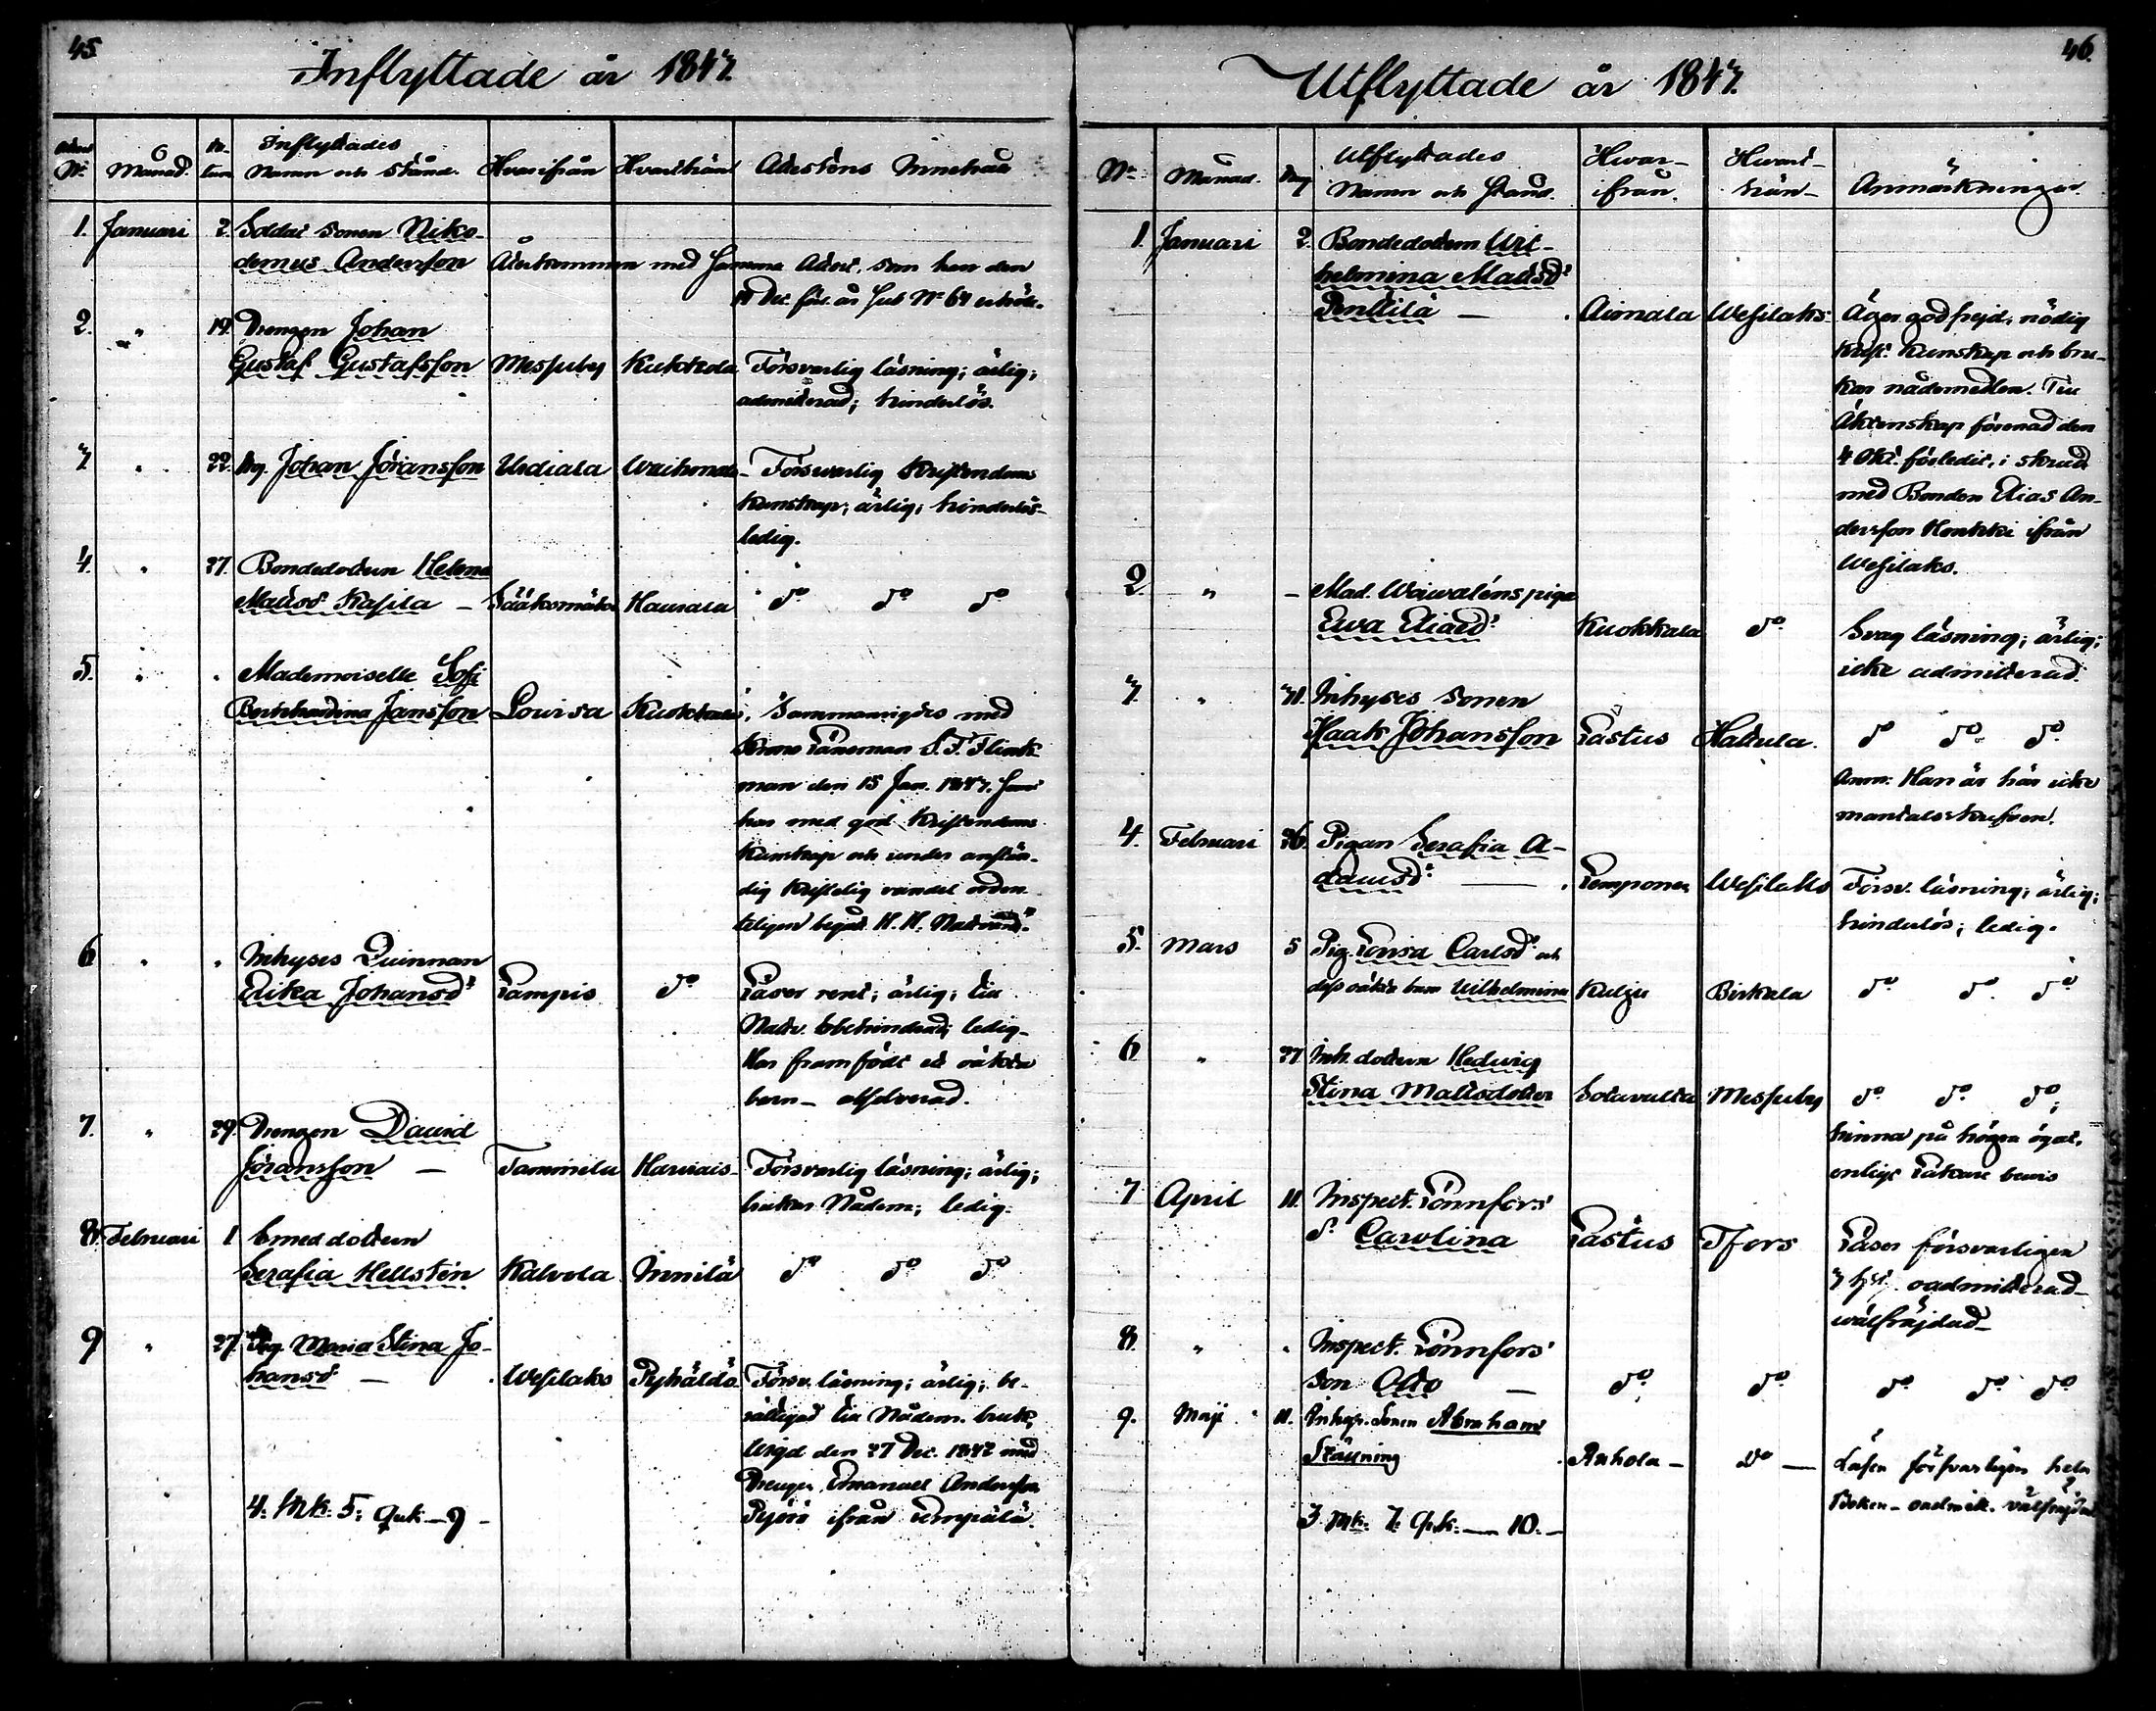 45.
Inflyttade år 1843.
Attest N:o Månad. Da-tum Inflyttades Namn och stånd. Hvarifrån Hvarthän Attestens Innehåll
1. Januari 2. Soldat sonen Niko-
demus Andersson Återkommen med samma Attest, som han den
förl. år sub N:o 64 erhöll.
2. " 19. Drengen Johan
Gustaf Gustafsson Messuby Kuckola Försvarlig läsning; ärlig;
admitterad; hinderlös.
3 " 22. Drg. Johan Jöransson Urdiala Försvarlig Kristendoms
kunskap; ärlig; hinderlös
ledig.
4. " 27. Bondedottern Helena
Matisd:r Kasila – Sääksmäki d:o d:o d:o
5. " " Mademoiselle Sofi
Jansson Lovisa Kuokkala Sammanvigdes med
Krono Länsman S. F. Flink-
man den 15 Jan. 1843. Som
har med god Kristendoms
Kunskap och under anstän-
dig Kristelig vandel orden-
teligen begått H. H. Nattvard.
6 " " Inhyses Quinnan
Erika Johansd:r Lampis d:o Läser rent; ärlig; till
Nattv. obehindrad; ledig–
Har framfödt ett oäkta
barn – absolverad.
7. " 29. Drengen David
Jöransson – Tammela Försvarlig läsning; ärlig;
brukar Nådem.; ledig.
8. Februari 1 Smeddottern
Serafia Hellstén Kalvola Innilä d:o d:o d:o
9 " 27. Pig. Maria Stina Jo-
hansd:r – Wesilaks Pyhältö Försv. läsning; ärlig; be-
rättigad till Nådem. bruk;
Wigd den 27 Dec. 1842 med
Drengen Emanuel Andersson
ifrån Lempälä.
4. Mk. 5. Quk. – 9 –
46.
Utflyttade år 1843.
N:o Månad. Dag Utflyttades Namn och stånd. Hwar-ifrån. Hwart-hän– Anmärkningar.
1. Januari 2. Bondedottern Wil-
helmina Matisd:r
Penttilä – Aimala Wesilaks Äger god frejd, nödig
Krist. Kunskap och bru-
kar nådemedlen. Till
Äktenskap förenad den
4 Okt. förledit, i skrud
med Bonden Elias An-
dersson Honkki ifrån
Wesilaks.
2 " – Mad. Wäwaléns piga
Ewa Eliaed:r Kuokkala d:o Svag läsning; ärlig;
icke admitterad.
3. " 31. Inhyses sonen
Isaak Johansson Lastus Hattula. d:o d:o d:o
Anm: Han är här icke
mantalsskrifven.
4. Februari 26. Pigan Serafia A-
damsd:r – Lemponen Wesilaks Försv. läsning; ärlig;
hinderlös; ledig.
5. Mars 5 Pig. Lovisa Carlsd:r och
dess oäkta barn Wilhelmina Kulju Birkala d:o d:o d:o
6 " 27 Inh. dottern Hedwig
Stina Mattsdotter Sotavalta Messuby d:o d:o d:o;
hinna på högra ögat,
enligt Läkare bevis
7 April 11. Inspect. Lönnfors'
d:r Carolina Lastus Tfors Läser försvarligen
3 hst. oadmitterad–
wälfräjdad–
8. " " Inspect. Lönnfors'
son Otto – d:o d:o d:o d:o d:o
9. Maji 11. Inhys. Sonen Abraham
Ställning Anhola – d:o – Läser försvarligen hela
Boken – oadmitt. välfräjdad
3 Mk. 7. Qvk. — 10. –